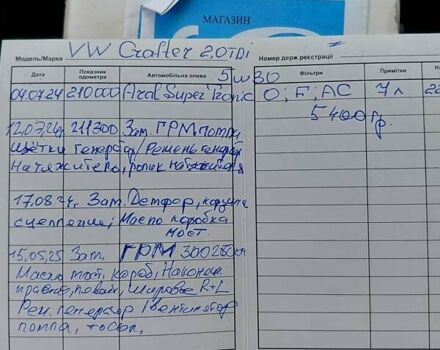 МАГАЗИН
Модель/Марка VW Crafter 2,0TDi Номер держ реєстрації
Дата Показник одометра Автомобільна олива 5w30 Фільтри Примітки
04.07.24 210000 Aral Super Tronic O; F; AC 7л
5400гр.
12.07.24 211300 Зам. ГРМ помпа
щётки генератор/Ремень генер
Натяжителя, ролик натяжителя
17.08.24. Зам. Демфер, корзина
сцепление, Масло коробка
мост.
15.05.25 Зам. ГРМ 300250км
Масло мост, короб, Наконеч
правый, левый, шаровые R+L
Рем. генератор / вентилятор
помпа,